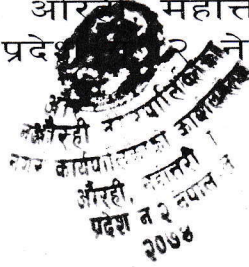 औरही महोत्त
प्रदेश २ ने
औरही नगरपालिकाको
नगर कार्यपालिकाको कार्यालय
औरही, महोत्तरी ।
प्रदेश नं २ नेपाल
२०७४